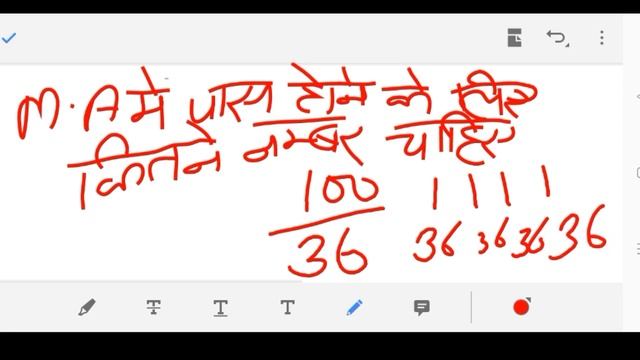 M.A में पास होने के लिए
कितने नम्बर चाहिए
100 1 1 1 1
36 36 36 36 36
T T T